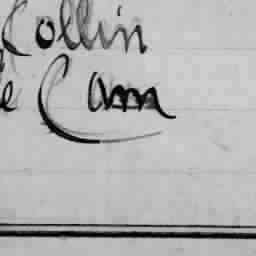 Collin
e Cam